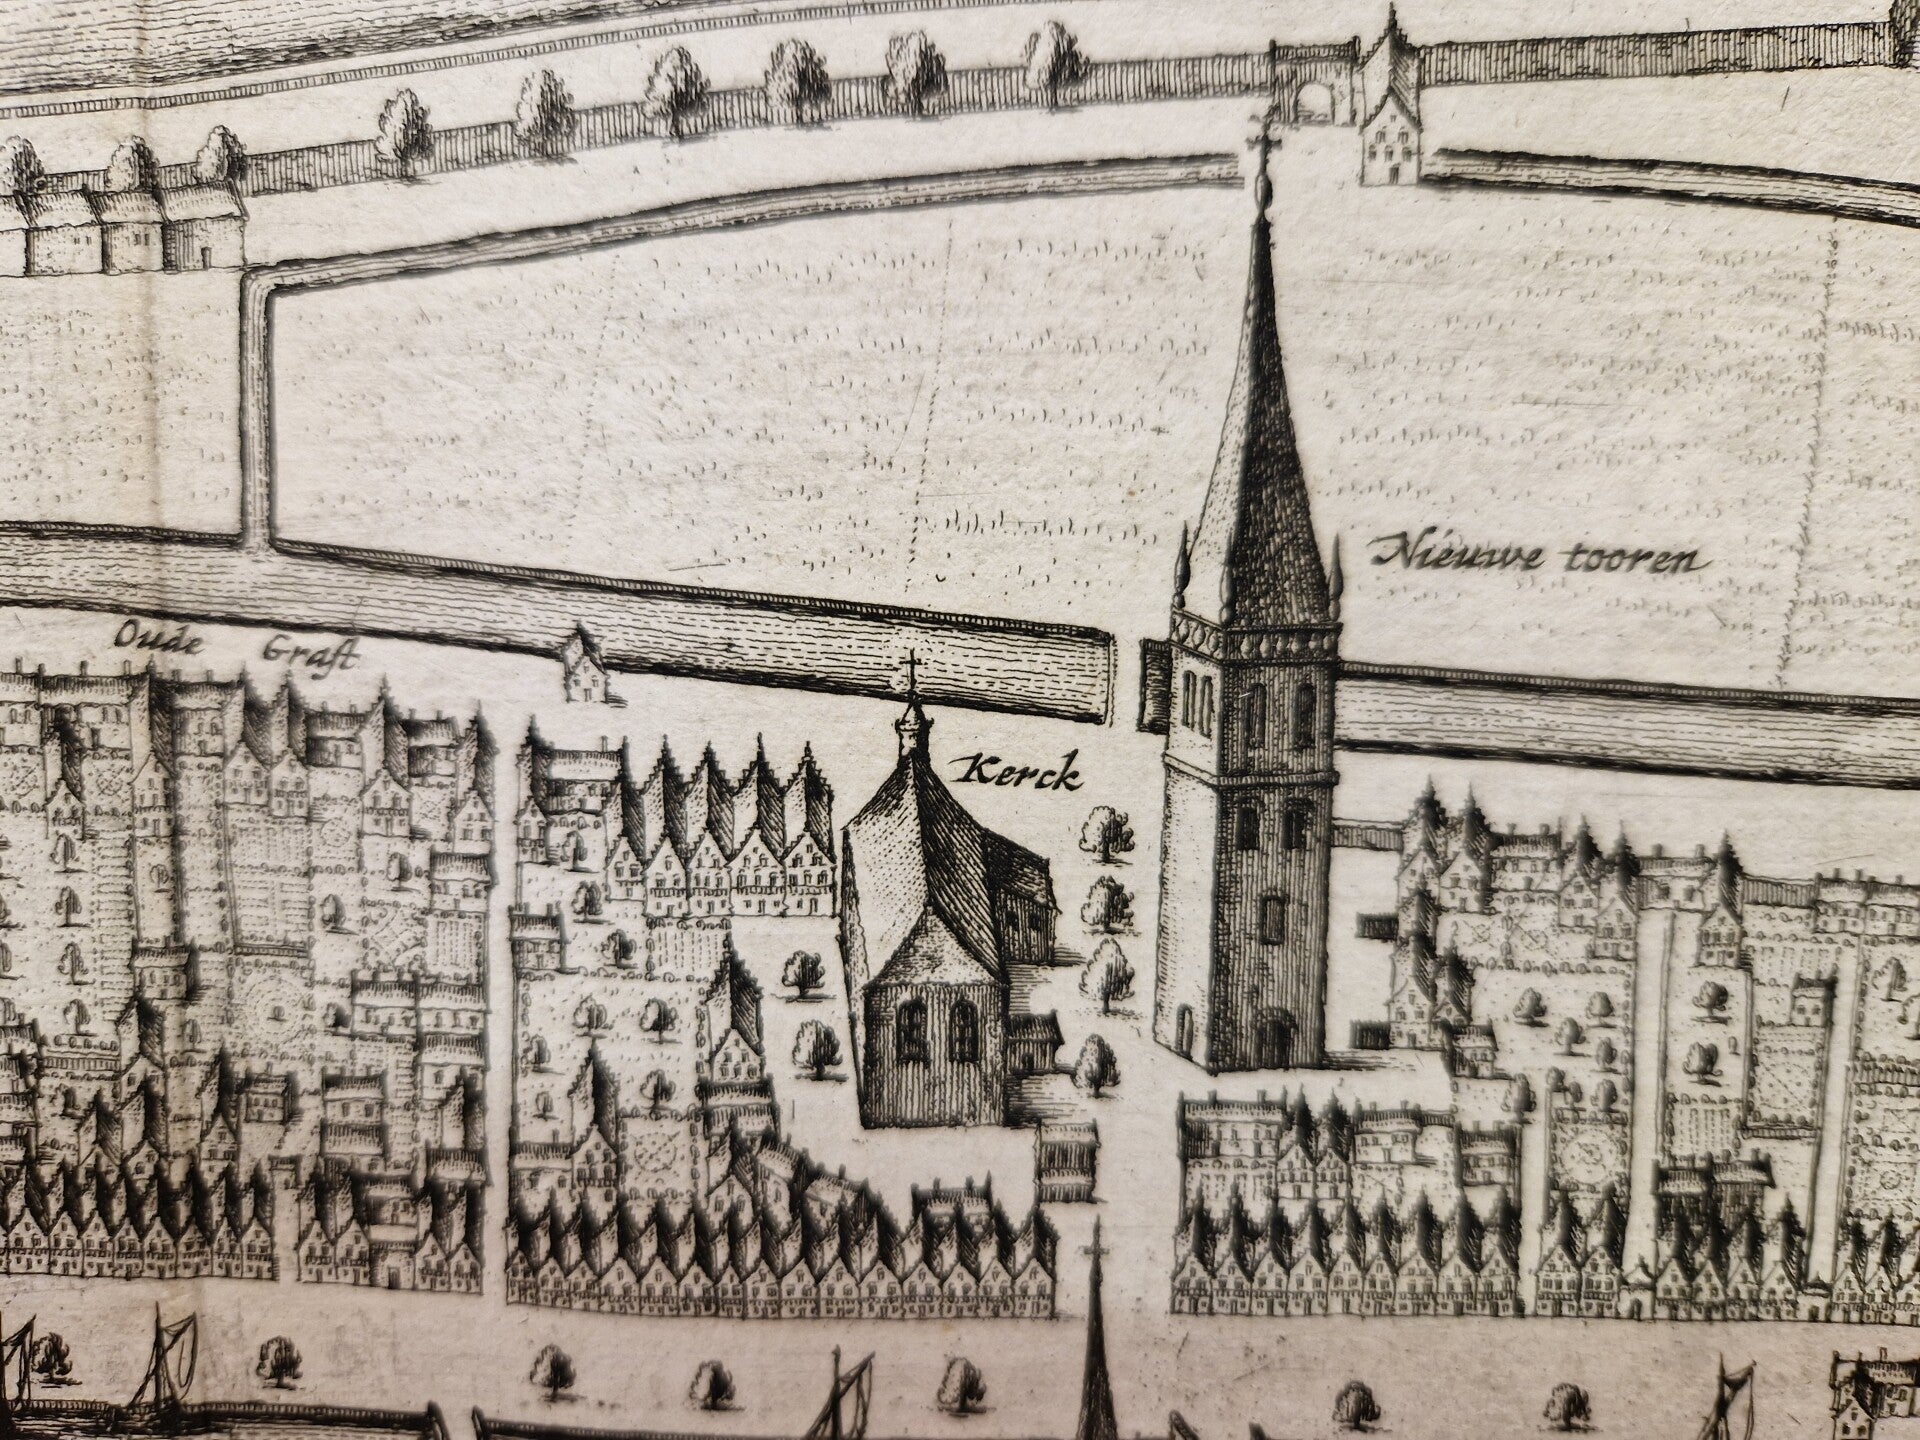 Nieuwe tooren
Oude Graft
Kerck